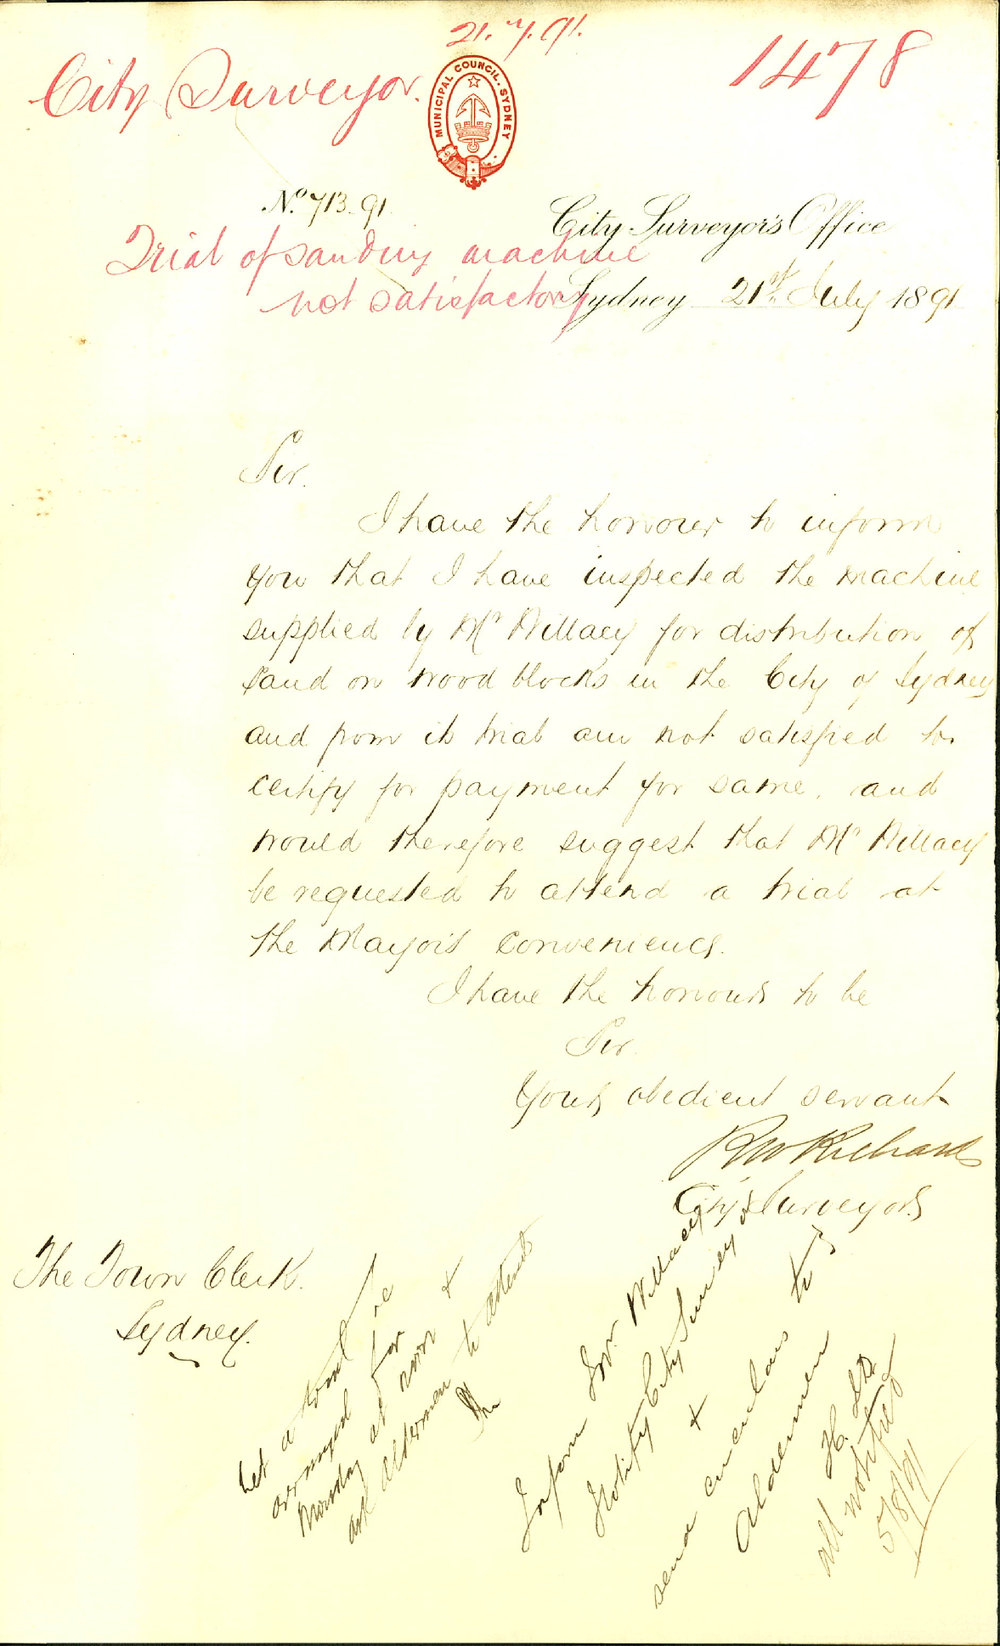 21.7.91.
1478
City Surveyor.
MUNICIPAL COUNCIL. SYDNEY
No. 713.91
City Surveyor's Office
Trial of sanding machine
not satisfactory
Sydney 21st July 1891
Sir.
I have the honour to inform
you that I have inspected the machine
supplied by Mr Willacy for distribution of
sand on wood blocks in the City of Sydney
and from its trial am not satisfied to
certify for payment for same. and
would therefore suggest that Mr Willacy
be requested to attend a trial at
the Mayor's convenience.
I have the honour to be
Sir.
Your obedient servant
RW Richards
City Surveyor
The Town Clerk.
Sydney.
Let a trial be
arranged for
Monday at noon &
ask aldermen to attend
Inform Mr. Willacy
Notify City Surveyor
&
send circulars to
Aldermen
all notified
5/8/91